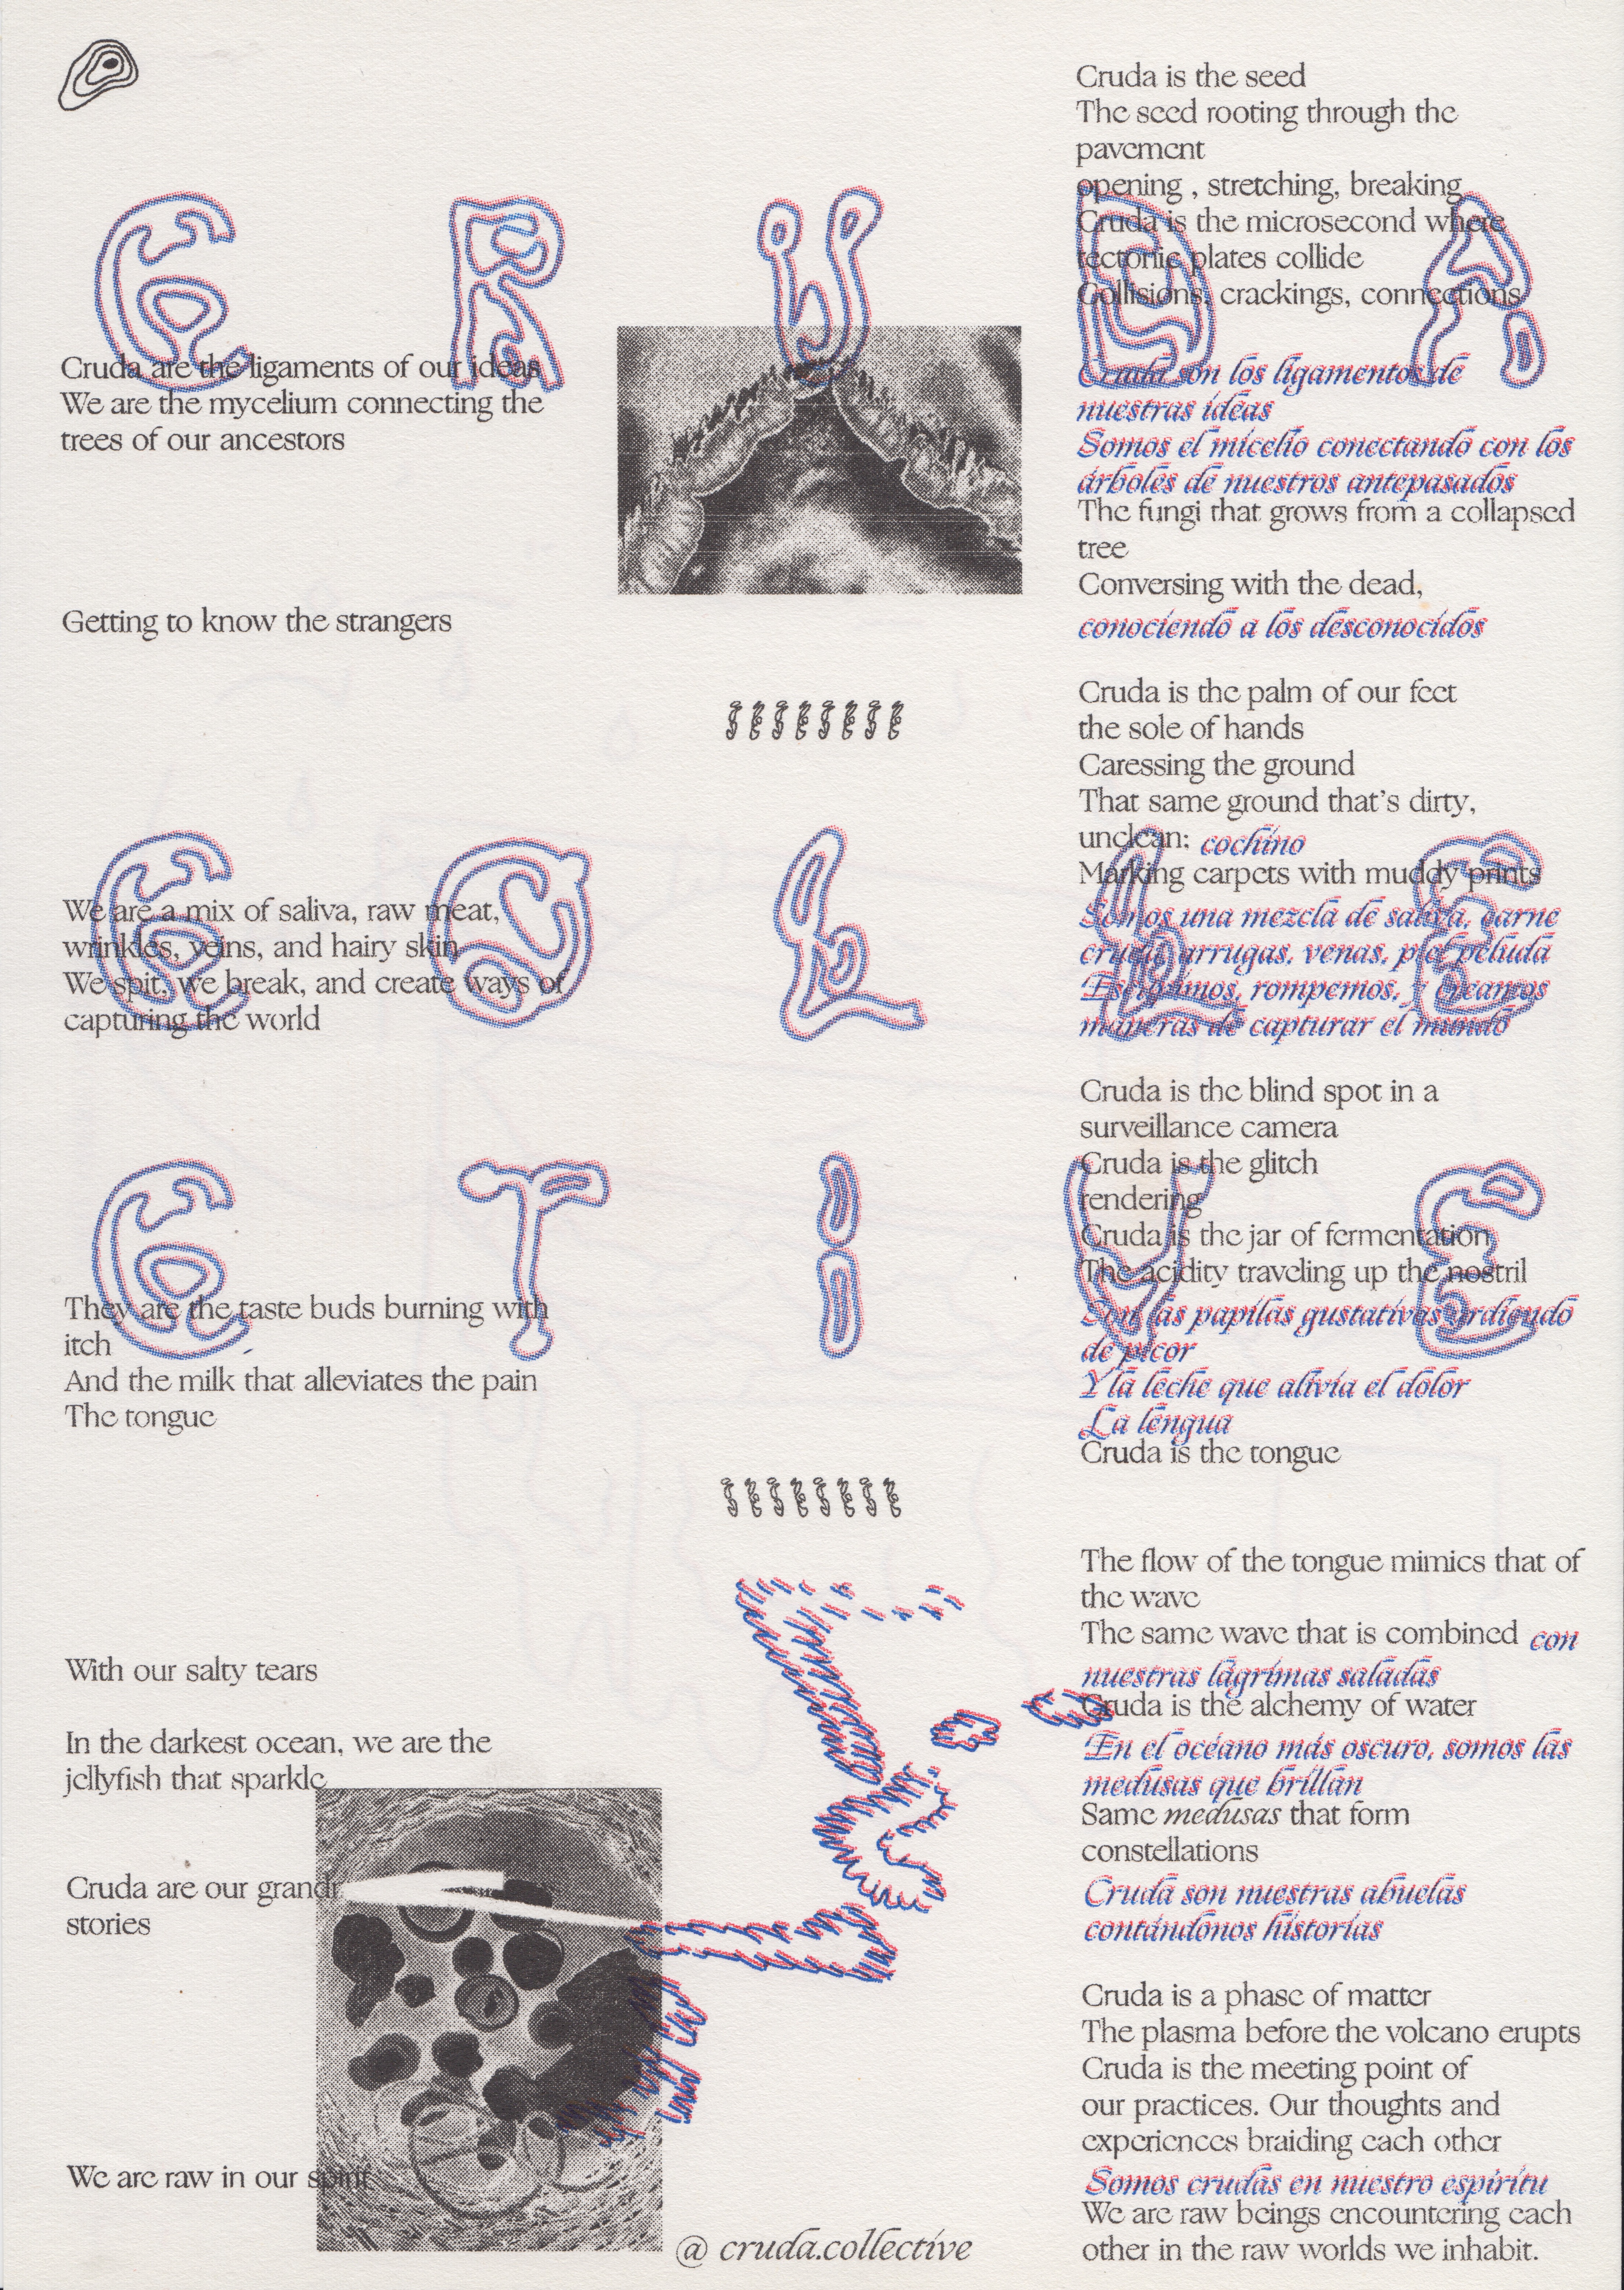 CRUDA
COLLE
CTIVE
Cruda are the ligaments of our ideas
We are the mycelium connecting the
trees of our ancestors
Getting to know the strangers
We are a mix of saliva, raw meat,
wrinkles, veins, and hairy skin
We spit, we break, and create ways of
capturing the world
They are the taste buds burning with
itch
And the milk that alleviates the pain
The tongue
With our salty tears
In the darkest ocean, we are the
jellyfish that sparkle
Cruda are our
stories
We are raw in our spirit
@ cruda.collective
Cruda is the seed
The seed rooting through the
pavement
opening , stretching, breaking
Cruda is the microsecond where
tectonic plates collide
Collisions, crackings, connections
Cruda son los ligamentos de
nuestras ideas
Somos el micelio conectando con los
árboles de nuestros antepasados
The fungi that grows from a collapsed
tree
Conversing with the dead,
conociendo a los desconocidos
Cruda is the palm of our feet
the sole of hands
Caressing the ground
That same ground that's dirty,
unclean; cochino
Marking carpets with muddy prints
Somos una mezcla de saliva, carne
cruda, arrugas, venas, piel peluda
Escupimos, rompemos, y creamos
maneras de capturar el mundo
Cruda is the blind spot in a
surveillance camera
Cruda is the glitch
rendering
Cruda is the jar of fermentation
The acidity traveling up the nostril
Son las papilas gustativas ardiendo
de picor
Y la leche que alivia el dolor
La lengua
Cruda is the tongue
The flow of the tongue mimics that of
the wave
The same wave that is combined con
nuestras lágrimas saladas
Cruda is the alchemy of water
En el océano más oscuro, somos las
medusas que brillan
Same medusas that form
constellations
Cruda son nuestras abuelas
contándonos historias
Cruda is a phase of matter
The plasma before the volcano erupts
Cruda is the meeting point of
our practices. Our thoughts and
experiences braiding each other
Somos crudas en nuestro espíritu
We are raw beings encountering each
other in the raw worlds we inhabit.